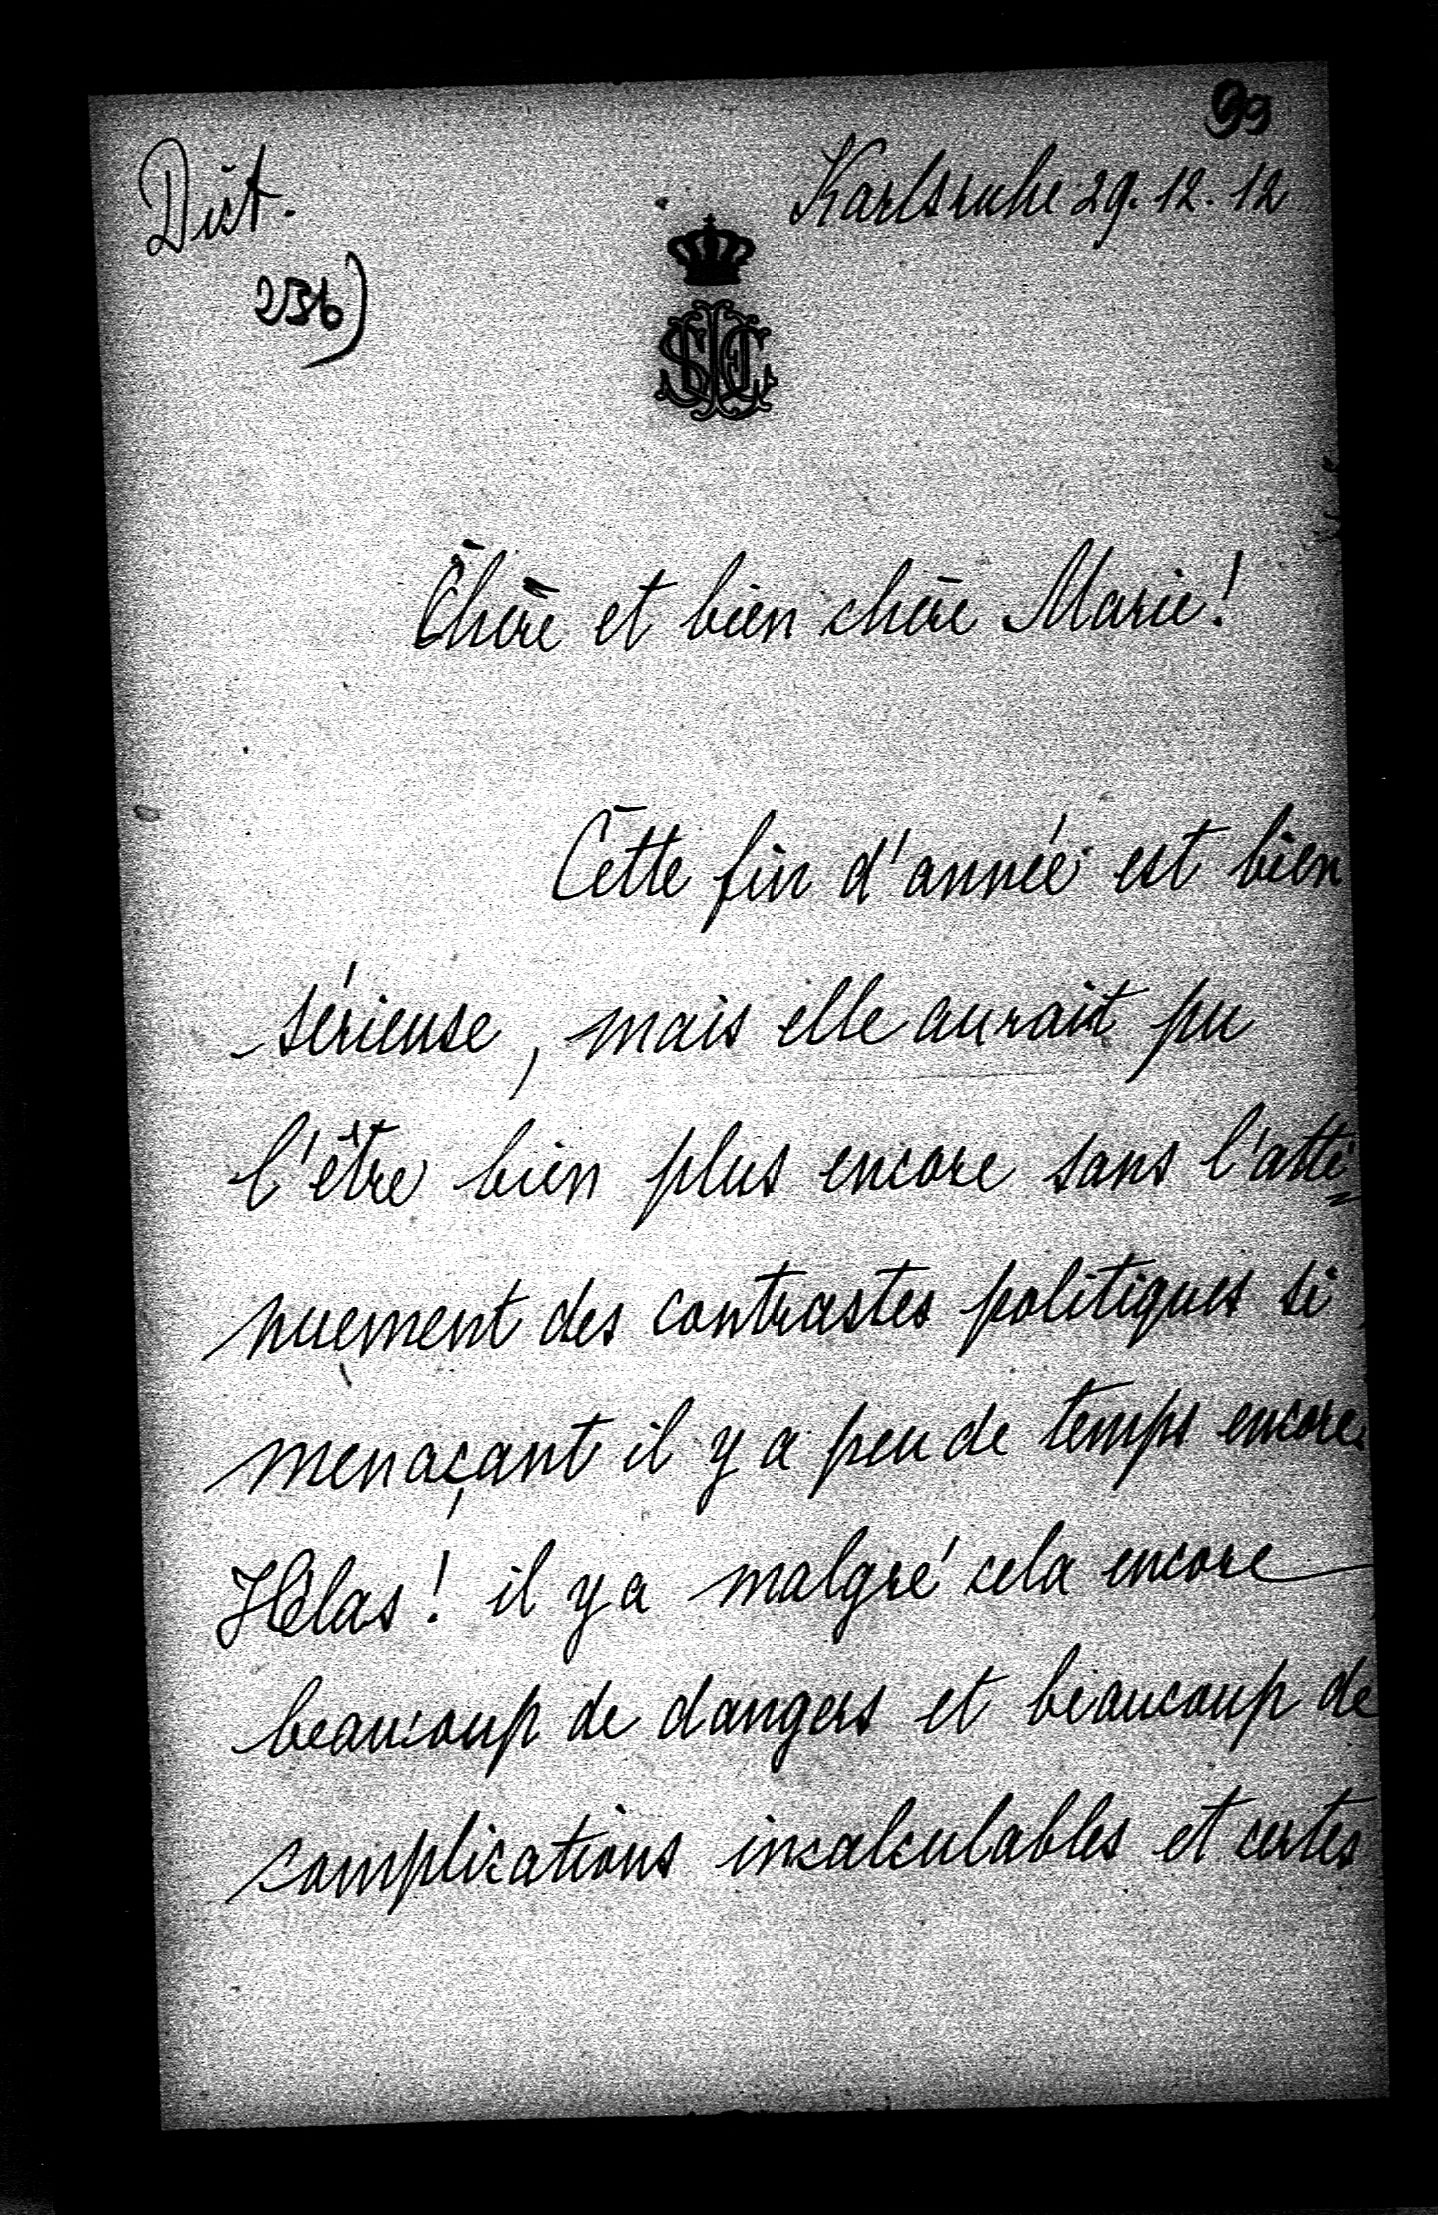 99
Dict. Karlsruhe 29. 12. 12
256)
Chère et bien chère Marie!
Cette fin d'année est bien
sérieuse, mais elle aurait pu
l'être bien plus encore sans l'atté=
nuement des contrastes politiques si
menaçant il y a peu de temps encore.
Hélas! il y a malgré cela encore
beaucoup de dangers et beaucoup de
complications incalculables et certes